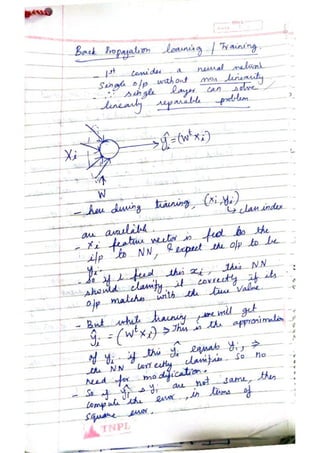 Back Propagation learning / Training
- 1st consider a neural network
Single o/p without non linearity
∴ single layer can solve
linearly separable problem
Xi → ŷi = (W^t Xi)
W
- here during training, (xi, yi)
↳ class index
are available.
- Xi feature vector is fed to the
i/p to NN, & expect the o/p to be
yi.
- So if I feed this xi, this NN
should classify it correctly if its
o/p matches with the true value.
- But while training, we will get
ŷi = (W^t Xi) → This is the approximation
of yi if this ŷi equals yi, ⇒
the NN correctly classifies. So no
need for modification.
- So if ŷi & yi are not same, then
compute the error, in terms of
square error.
TNPL